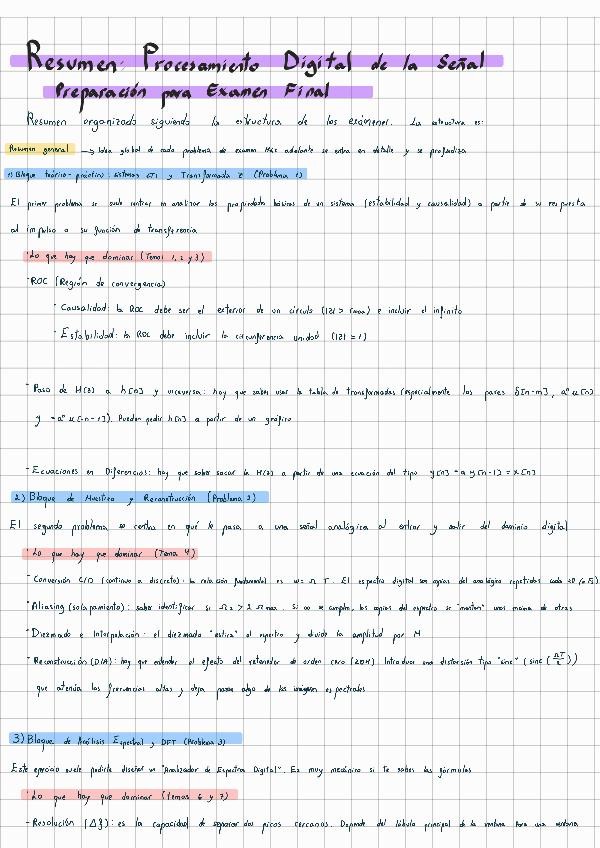 Resumen: Procesamiento Digital de la Señal
Preparación para Examen Final
Resumen organizado siguiendo la estructura de los exámenes. La estructura es:
Resumen general → Idea global de cada problema de examen. Más adelante se entra en detalle y se profundiza
1) Bloque teórico-práctico: sistemas LTI y Transformada Z (Problema 1)
El primer problema se suele centrar en analizar las propiedades básicas de un sistema (estabilidad y causalidad) a partir de su respuesta
al impulso o su función de transferencia
· Lo que hay que dominar (Temas 1, 2 y 3)
- ROC (Región de convergencia)
· Causalidad: la ROC debe ser el exterior de un círculo (|z| > rmax) e incluir el infinito
· Estabilidad: la ROC debe incluir la circunferencia unidad (|z| = 1)
- Paso de H(z) a h[n] y viceversa: hay que saber usar la tabla de transformadas (especialmente los pares δ[n-m], aⁿ u[n]
y -aⁿ u[-n-1]). Pueden pedir h[n] a partir de un gráfico
- Ecuaciones en Diferencias: hay que saber sacar la H(z) a partir de una ecuación del tipo y[n] - a y[n-1] = x[n]
2) Bloque de Muestreo y Reconstrucción (Problema 2)
El segundo problema se centra en qué le pasa a una señal analógica al entrar y salir del dominio digital
· Lo que hay que dominar (Tema 4)
- Conversión C/D (continuo a discreto): la relación fundamental es ω = Ω T. El espectro digital son copias del analógico repetidas cada
- Aliasing (solapamiento): saber identificar si Ωs > 2 Ωmax. Si no se cumple, las copias del espectro se "montan" unas encima de otras
- Diezmado e Interpolación: el diezmado "estira" el espectro y divide la amplitud por M
- Reconstrucción (D/A): hay que entender el efecto del retenedor de orden cero (ZOH). Introduce una distorsión tipo "sinc" (sinc(ΩT/2))
que atenúa las frecuencias altas y deja pasar algo de las imágenes espectrales
3) Bloque de Análisis Espectral y DFT (Problema 3)
Este ejercicio suele pedirte diseñar un "Analizador de Espectro Digital". Es muy mecánico si te sabes las fórmulas
· Lo que hay que dominar (Temas 6 y 7)
- Resolución (Δf): es la capacidad de separar dos picos cercanos. Depende del lóbulo principal de la ventana. Para una ventana